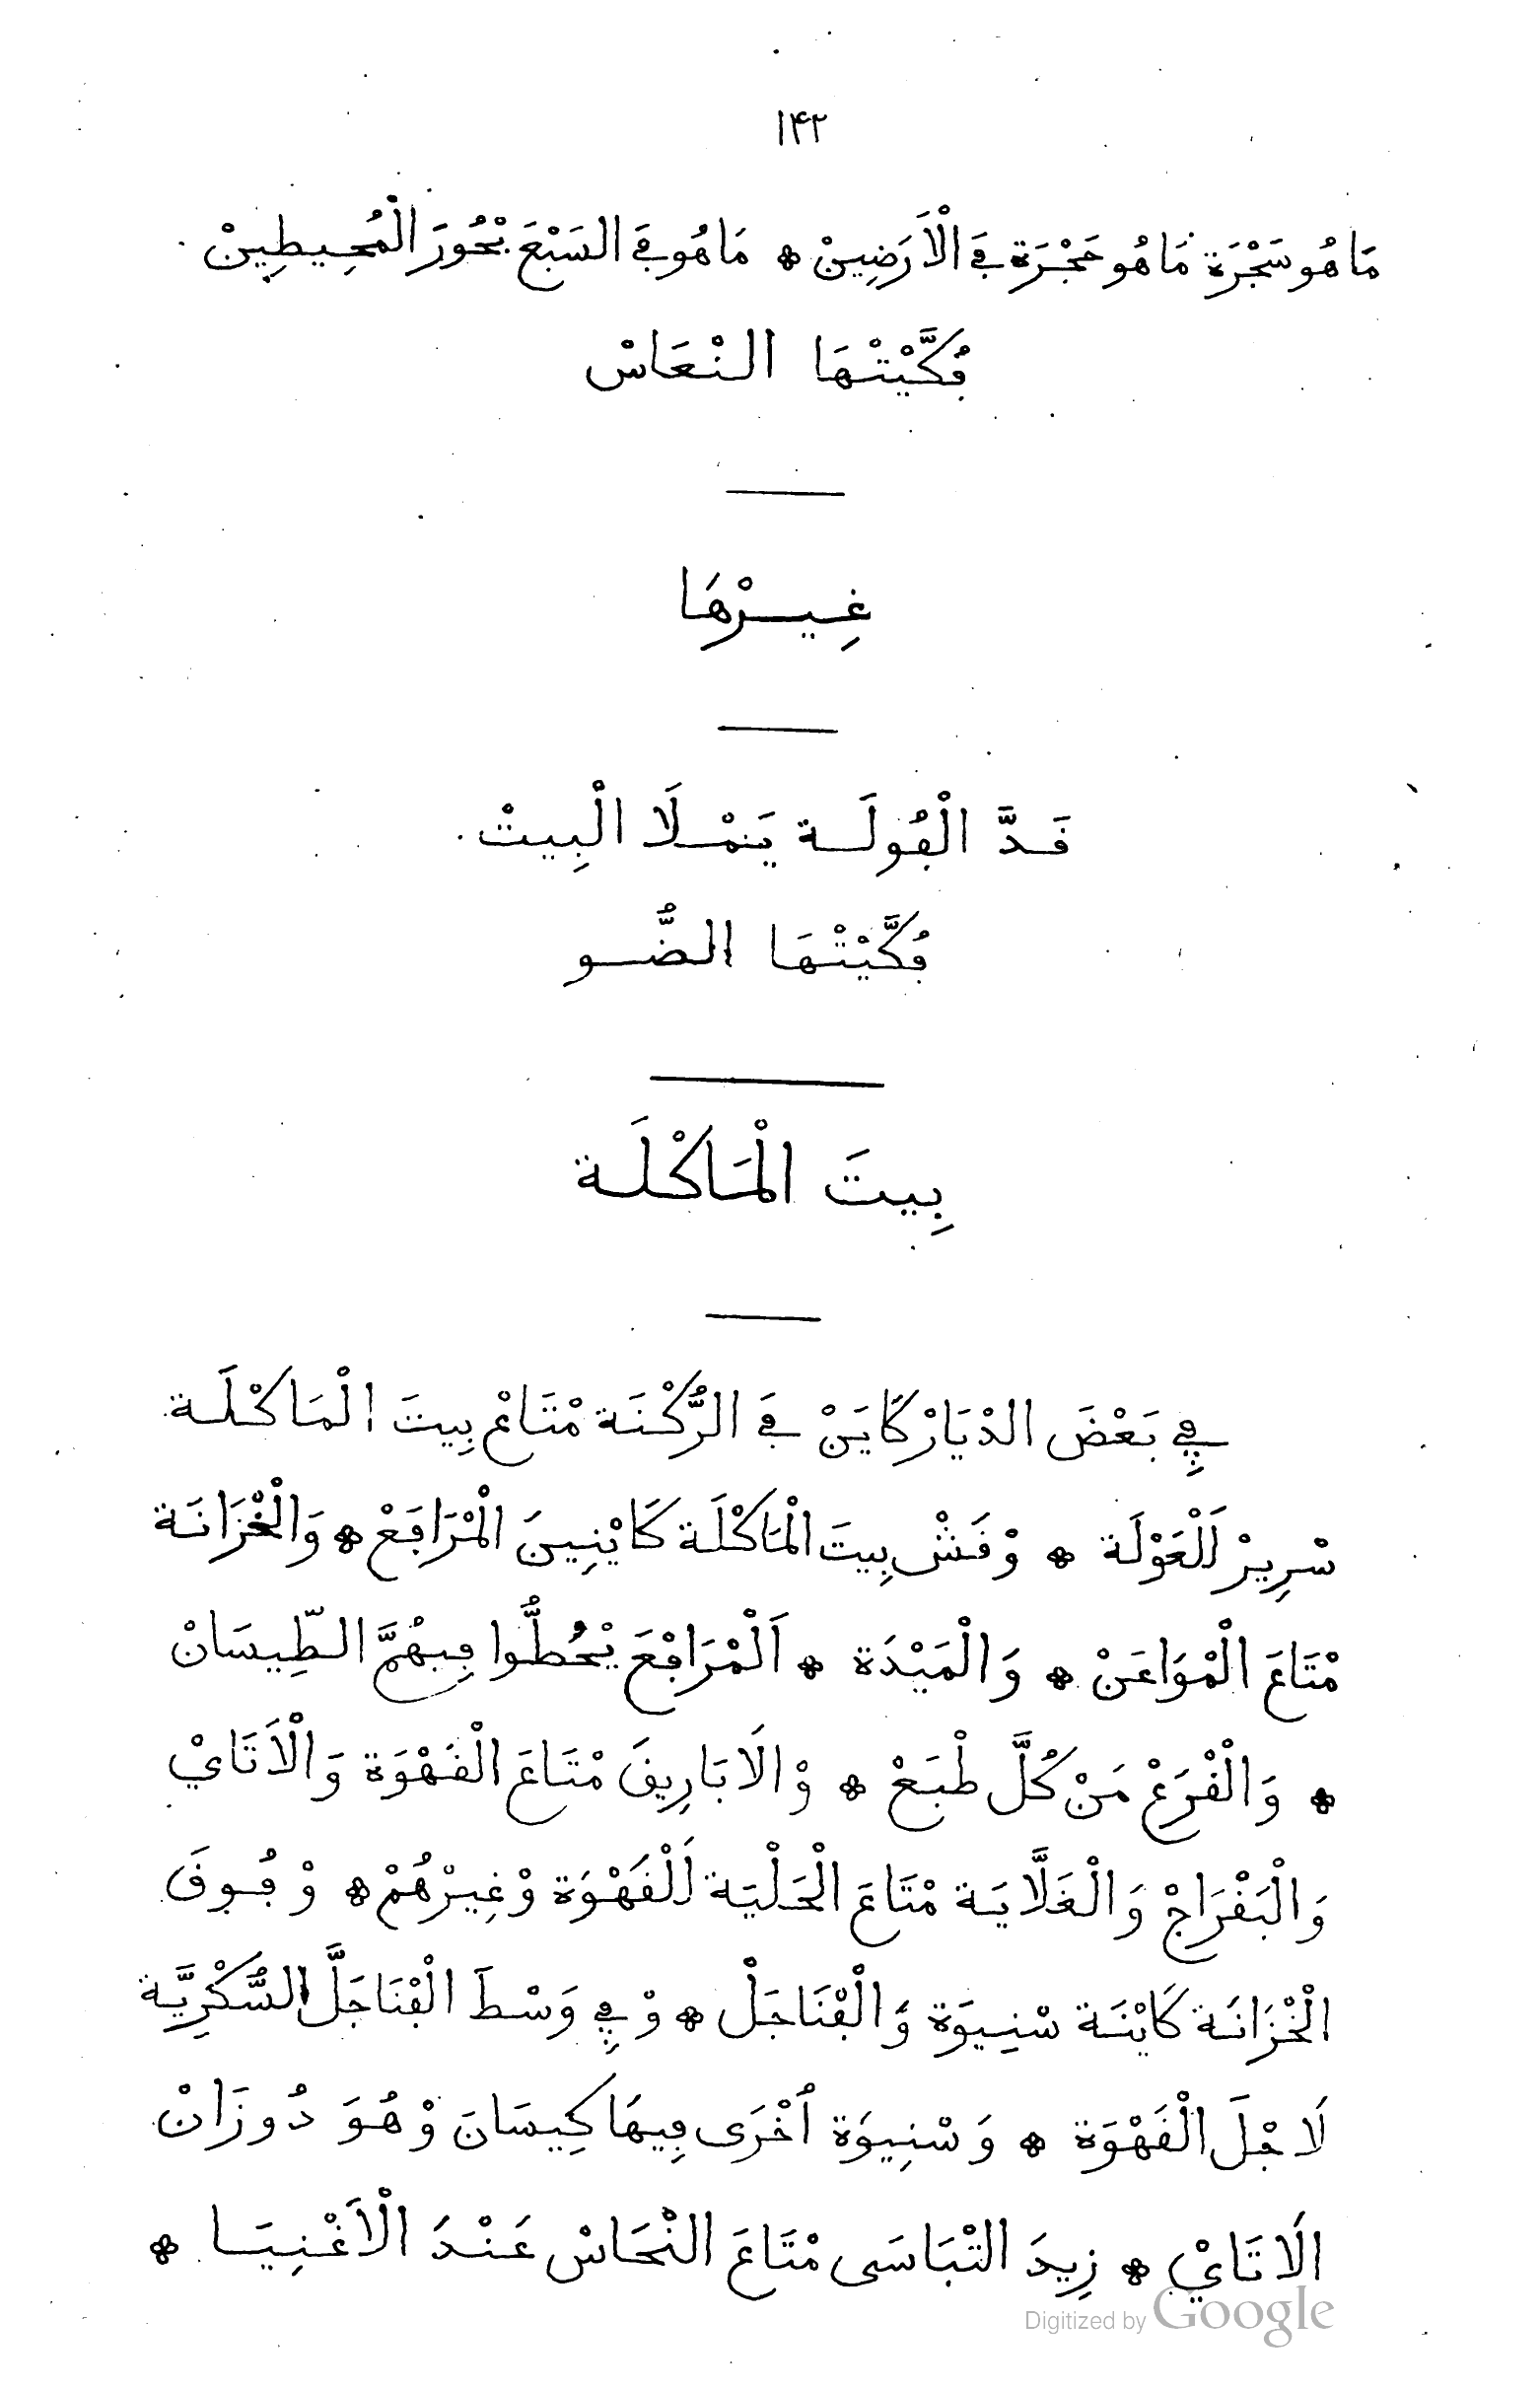 ١٤٢
مَا هُو سَجْرَة مَا هُو حَجْرَة ڢَ الْأَرَضِينْ * مَا هُو ڢَ السَبْعَ بْحُورَ الْمُحِيطِينْ
ڢُكَّيْتْهَا النْعَاسْ
غِيرْهَا
فَدَّ الْڢُولَة يَنمْلَا الْبِيتْ
ڢُكَّيْتْهَا الضُّو
بِيتَ الْمَاكْلَة
ڢِي بَعْضَ الدْيَارْ كَايَنْ ڢَ الرُّكْنَة مْتَاعْ بِيتَ الْمَاكْلَة
سْرِيرْ لَلْعَوْلَة * وْفَشْ بِيتَ الْمَاكْلَة كَايْنِينَ الْمْرَاڢَعْ * وَالْخْزَانَة
مْتَاعَ الْمْوَاعَنْ * وَالْمَيْدَة * اَلْمْرَاڢْعَ يْحُطُّوا ڢِيهُمَّ الطِّيسَانْ
* وَالْفْرَعْ مَنْ كُلَّ طْبَعْ * وْالَابَارِيفَ مْتَاعَ الْفَهْوَة وَالْأَتَايْ
وَالْبَفْرَاجْ وَالْغَلَّايَة مْتَاعَ الْحَلْيَة لَلْفَهْوَة وْغِيرْهُمْ * وْڢُوفَ
الْخْزَانَة كَايْنَة سْنِيوَة وَالْڢْنَاجَلْ * وْڢِي وَسْطَ الْڢْنَاجَلَّ السُّكْرِيَّة
لَاجْلَ الْفَهْوَة * وَسْنِيوَة اُخْرَى ڢِيهَا كِيسَانَ وْهُوَ دُوزَانْ
الَاتَايْ * زِيدَ التْبَاسَى مْتَاعَ النْحَاسْ عَنْدَ الْأَغْنِيَا *
Digitized by Google